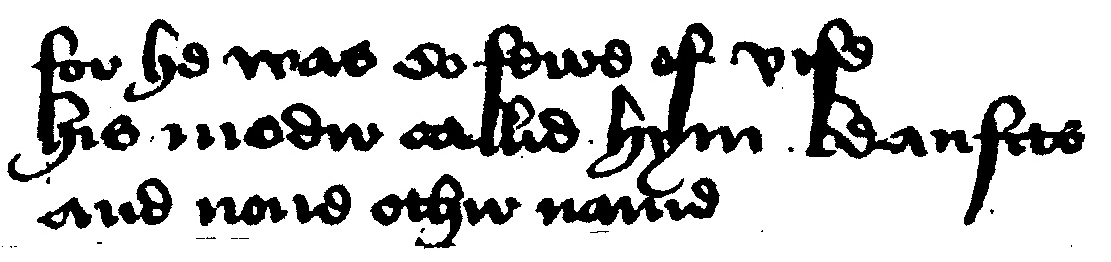 for he was so feire of vise
his modir callid hym beaufits
and none othir name